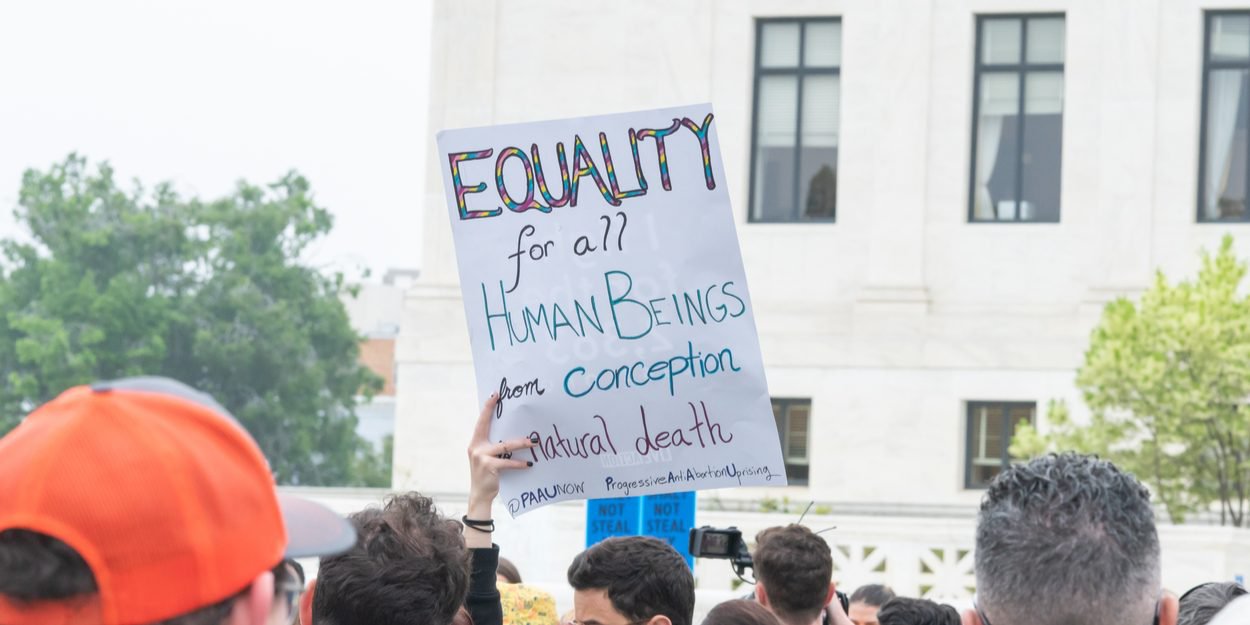 EQUALITY
for all
HUMAN BEINGS
from conception
natural death
@PAAUNOW ProgressiveAntiAbortionUprising
NOT NOT
STEAL STEAL